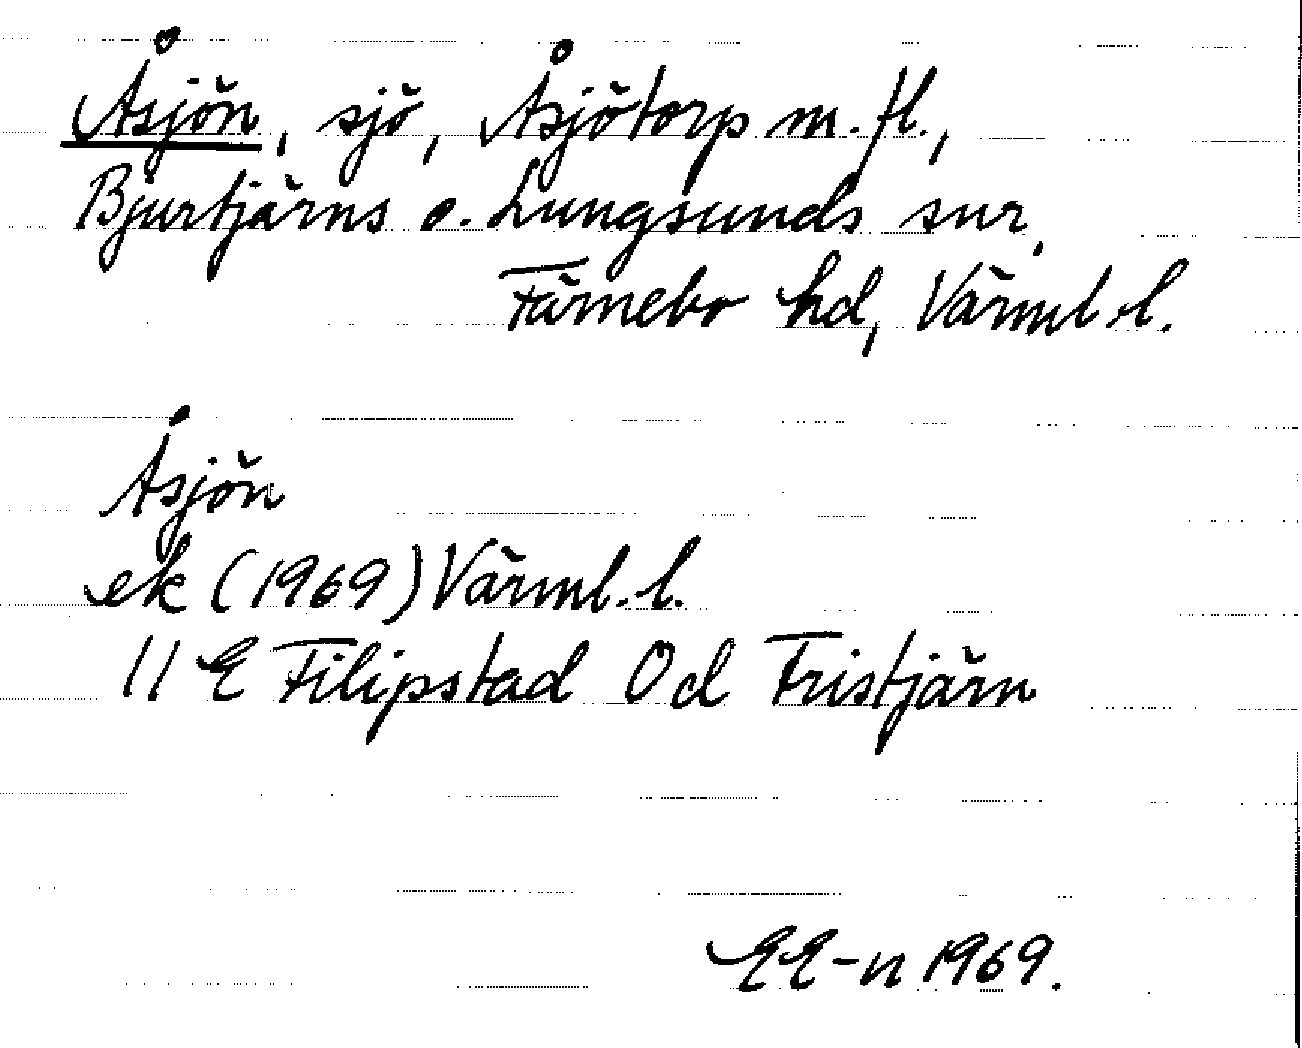 Åsjön, sjö, Åsjötorp m.fl.,
Bjurtjärns o. Lungsunds snr,
Färnebo hd, Värml.l.
Åsjön
ek (1969) Värml.l.
11 E Filipstad Od Fristjärn
EE-n 1969.